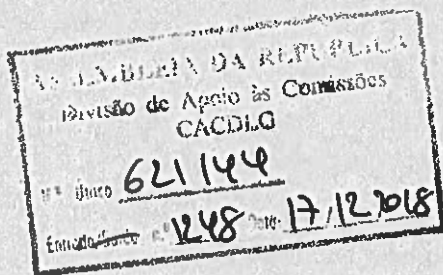 ASSEMBLEIA DA REPÚBLICA
Divisão de Apoio às Comissões
CACDLG
N.º Único 621144
Entrada/Saída n.º 1248 Data: 17/12/2018